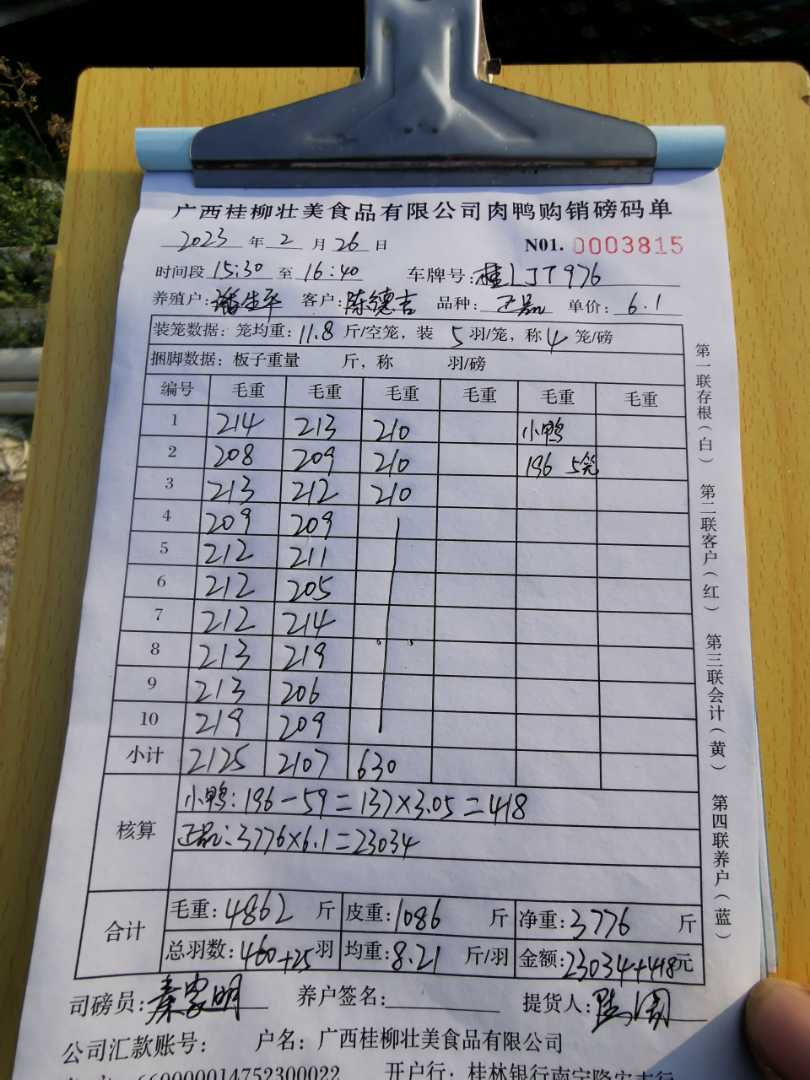 广西桂柳壮美食品有限公司肉鸭购销磅码单
2023 年 2 月 26 日 N01. 0003815
时间段 15:30 至 16:40 车牌号: 桂LJT976
养殖户: 潘生平 客户: 陈德吉 品种: 正品 单价: 6.1
装笼数据: 笼均重: 11.8 斤/空笼, 装 5 羽/笼, 称 4 笼/磅
捆脚数据: 板子重量 斤, 称 羽/磅
编号 毛重 毛重 毛重 毛重 毛重 毛重
1 214 213 210 小鸭
2 208 209 210 196 5笼
3 213 212 210
4 209 209
5 212 211
6 212 205
7 212 214
8 213 219
9 213 206
10 219 209
小计 2125 2107 630
核算
小鸭: 196-59=137×3.05=418
正品: 3776×6.1=23034
合计
毛重: 4862 斤 皮重: 1086 斤 净重: 3776 斤
总羽数: 460+25 羽 均重: 8.21 斤/羽 金额: 23034+418 元
司磅员: 秦家明 养户签名: 提货人:
公司汇款账号: 户名: 广西桂柳壮美食品有限公司
660000014752300022 开户行: 桂林银行南宁隆安支行
第一联存根(白)
第二联客户(红)
第三联会计(黄)
第四联养户(蓝)